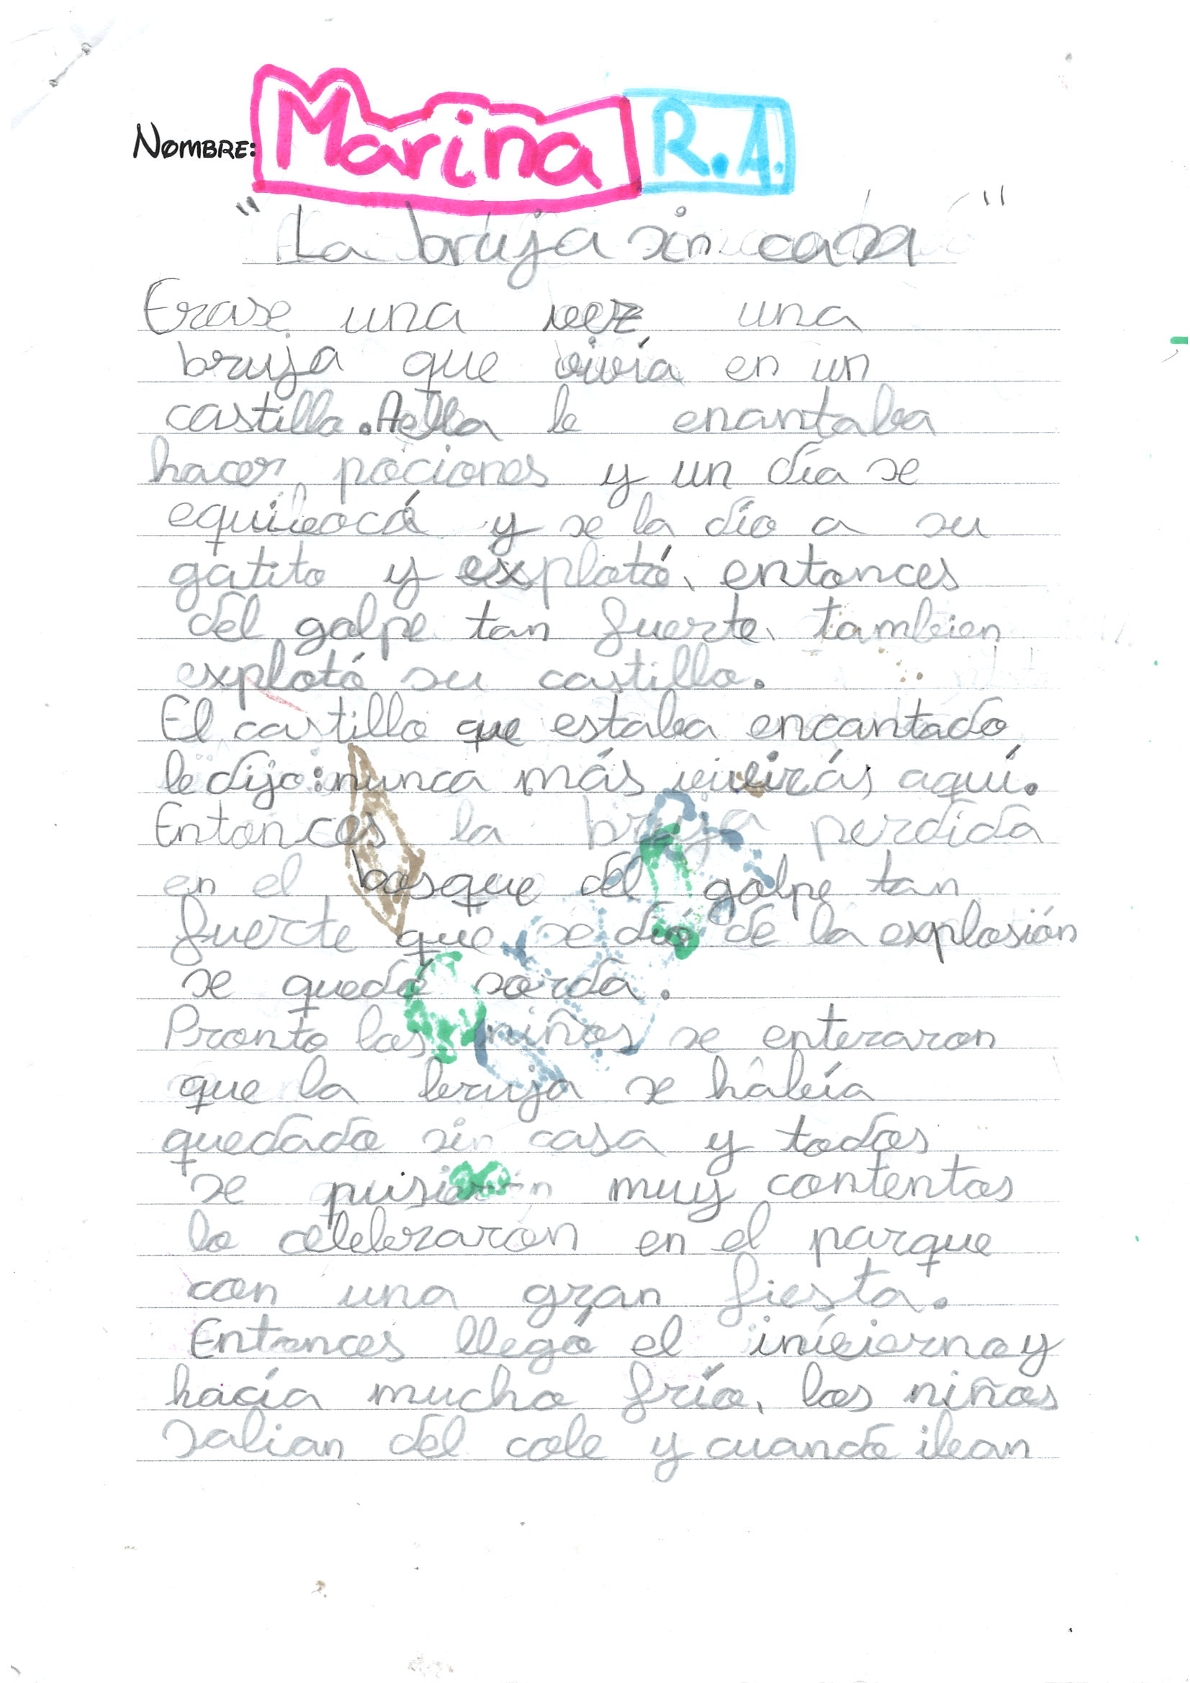 NOMBRE: Marina R.A.
"La bruja sin casa"
Erase una vez una
bruja que vivía en un
castillo. A ella le enantaba
hacer pociones y un día se
equivocó y se la dío a su
gatito y explotó, entonces
del golpe tan fuerte, tambien
explotó su castillo.
El castillo que estaba encantado
le dijo: nunca más vivirás aquí.
Entonces la bruja perdida
en el bosque del golpe tan
fuerte que se dió de la explosión
se quedó sorda.
Pronto los niños se enteraron
que la bruja se había
quedado sin casa y todos
se pusieron muy contentos
lo celebraron en el parque
con una gran fiesta.
Entonces llegó el invierno y
hacía mucho frío, los niños
salian del cole y cuando iban